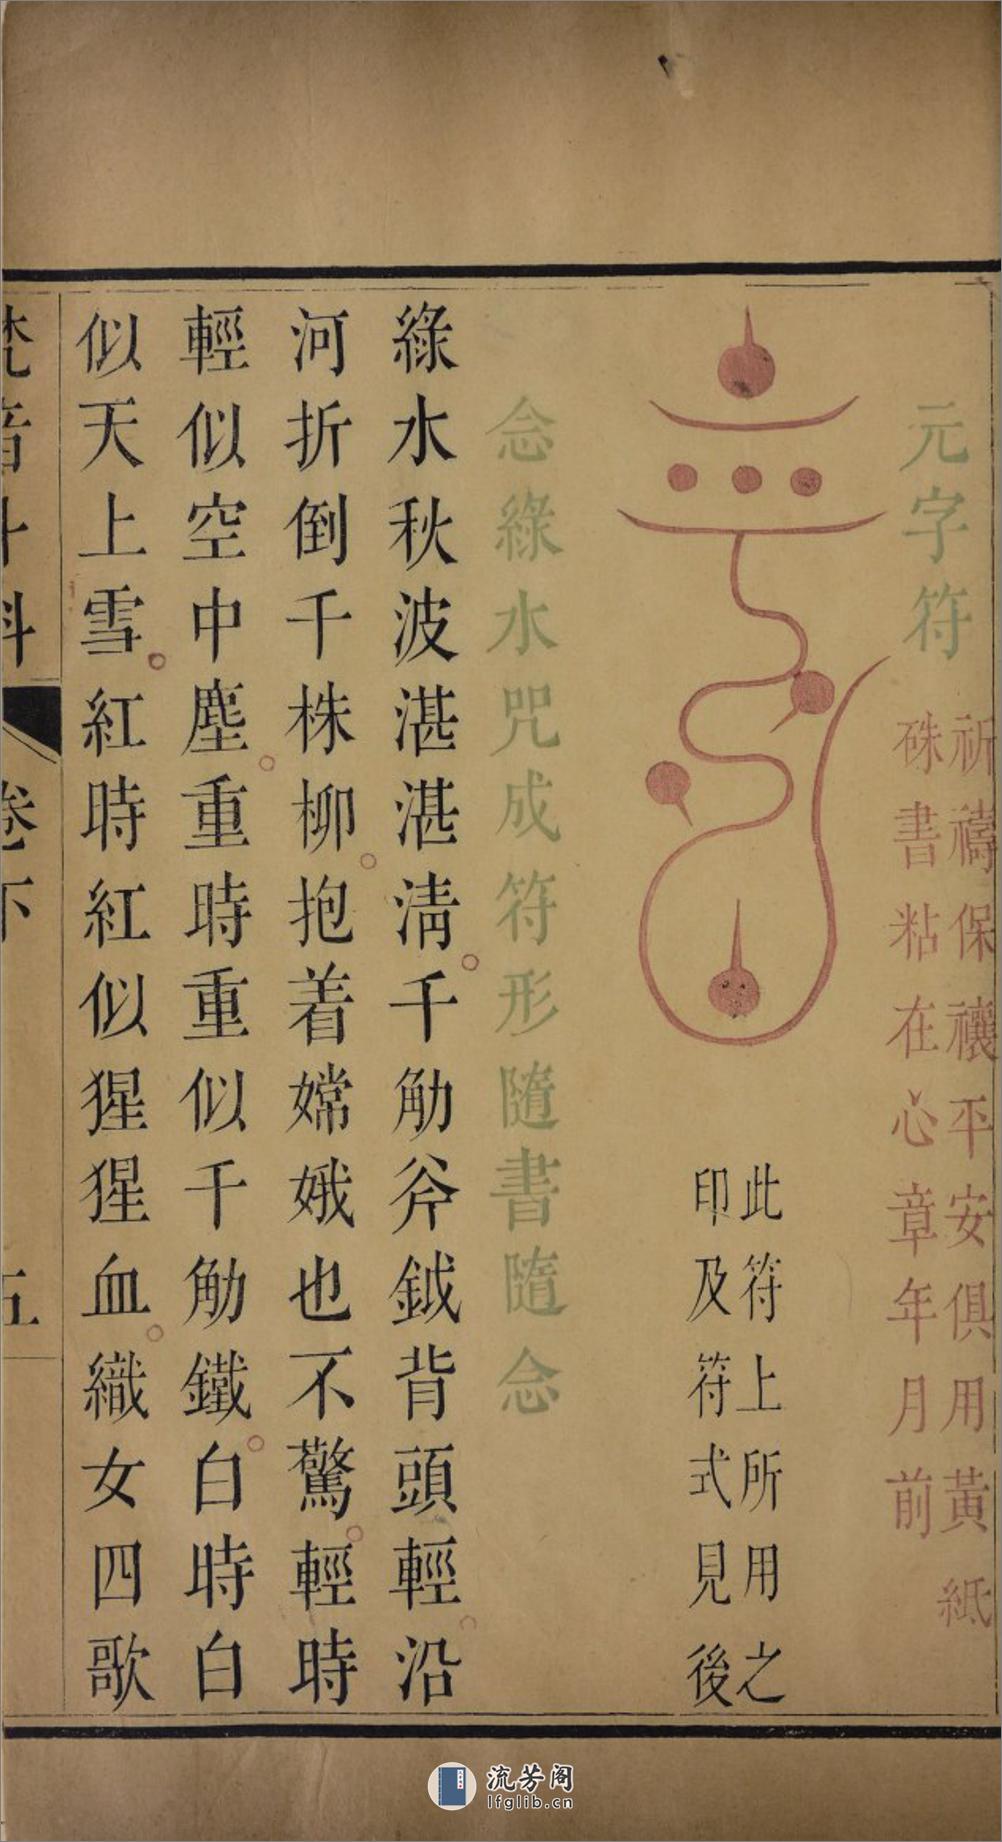 元字符
祈禱保禳平安俱用黃紙
硃書粘在心章年月前
此符上所用之
印及符式見後
念綠水咒成符形隨書隨念
綠水秋波湛湛淸千觔斧鉞背頭輕沿
河折倒千株柳抱着嫦娥也不驚輕時
輕似空中塵重時重似千觔鐵白時白
似天上雪紅時紅似猩猩血織女四歌
梵音斗科
卷下
五
流芳阁
lfglib.cn